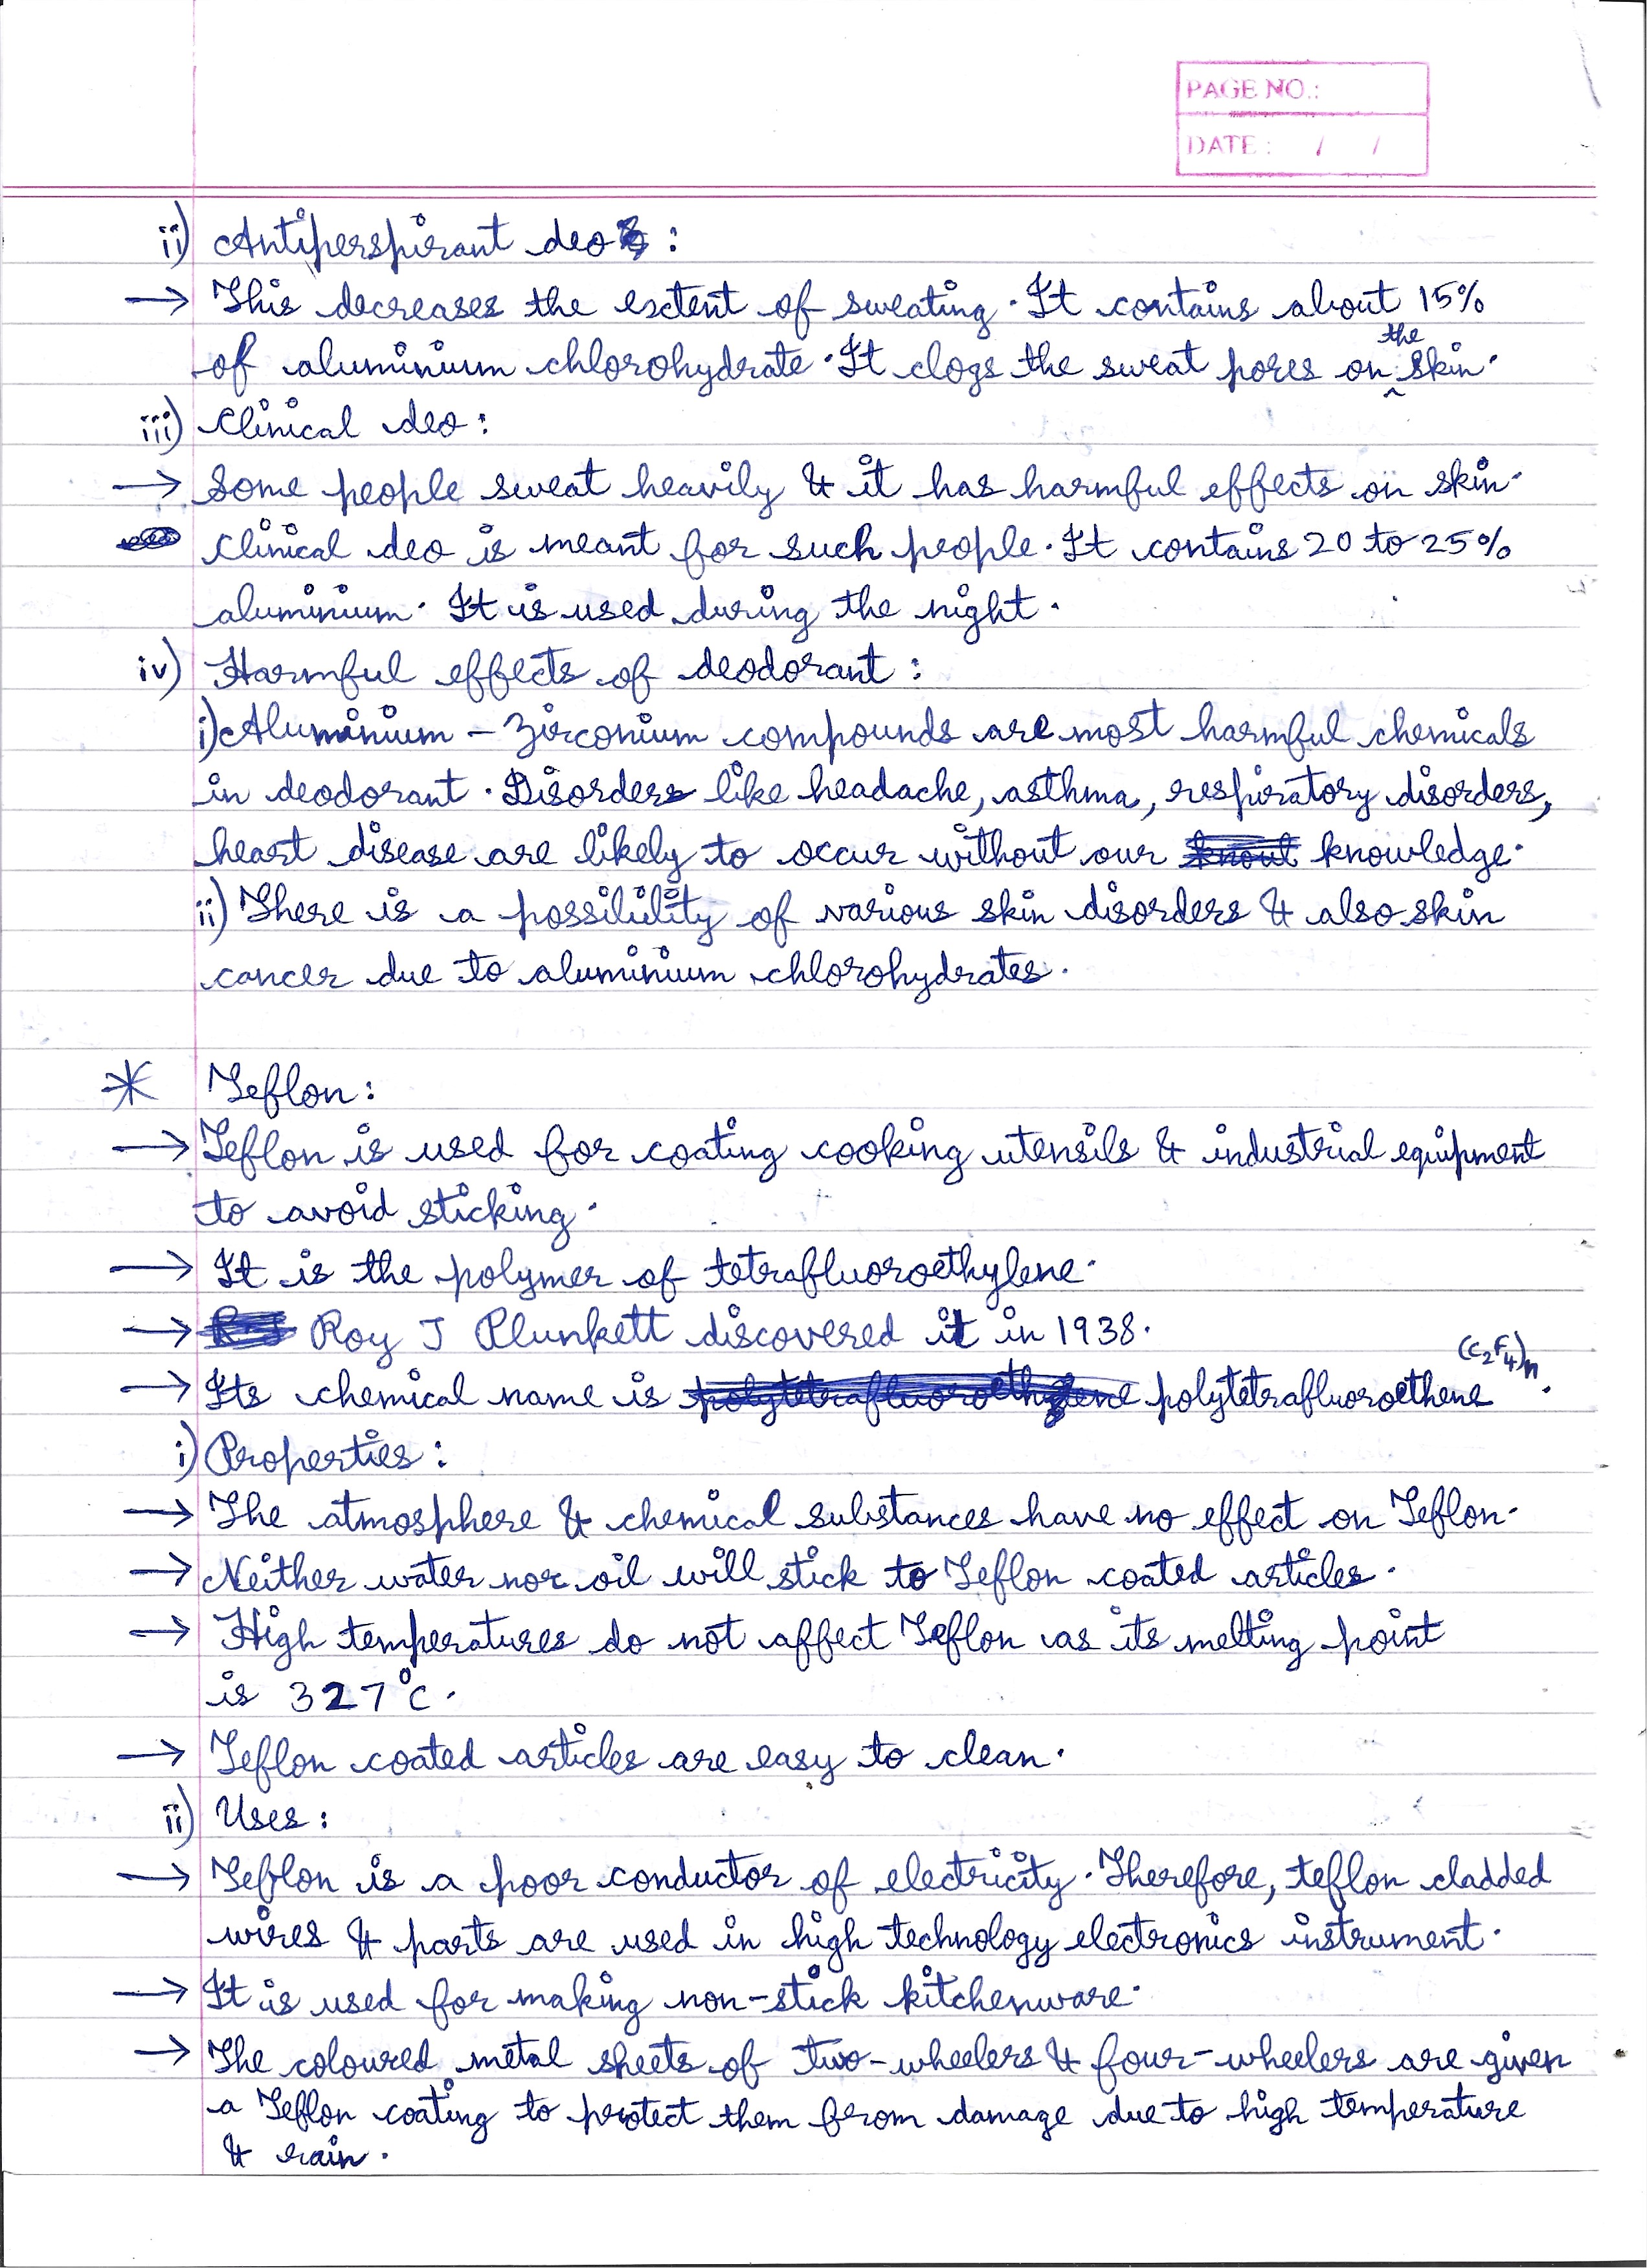 PAGE NO.:
DATE : / /
ii) Antiperspirant deo :
→ This decreases the extent of sweating. It contains about 15%
of aluminium chlorohydrate. It clogs the sweat pores on the skin.
iii) Clinical deo :
→ Some people sweat heavily & it has harmful effects on skin.
Clinical deo is meant for such people. It contains 20 to 25%
aluminium. It is used during the night.
iv) Harmful effects of deodorant :
i) Aluminium - Zirconium compounds are most harmful chemicals
in deodorant. Disorders like headache, asthma, respiratory disorders,
heart disease are likely to occur without our knowledge.
ii) There is a possibility of various skin disorders & also skin
cancer due to aluminium chlorohydrates.
* Teflon :
→ Teflon is used for coating cooking utensils & industrial equipment
to avoid sticking.
→ It is the polymer of tetrafluoroethylene.
→ Roy J Plunkett discovered it in 1938.
→ Its chemical name is polytetrafluoroethene (C₂F₄)n.
i) Properties :
→ The atmosphere & chemical substances have no effect on Teflon.
→ Neither water nor oil will stick to Teflon coated articles.
→ High temperatures do not affect Teflon as its melting point
is 327°C.
→ Teflon coated articles are easy to clean.
ii) Uses :
→ Teflon is a poor conductor of electricity. Therefore, teflon cladded
wires & parts are used in high technology electronics instrument.
→ It is used for making non-stick kitchenware.
→ The coloured metal sheets of two-wheelers & four-wheelers are given
a Teflon coating to protect them from damage due to high temperature
& rain.